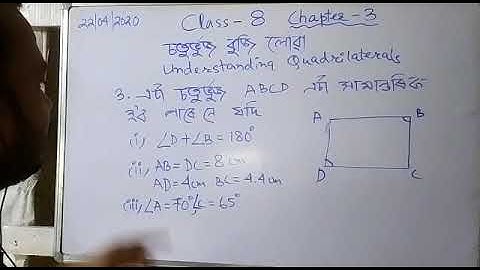 22/04/2020 Class - 8 Chapter - 3
চতুৰ্ভুজ বুজি লোৱা
Understanding Quadrilaterals
3. এটা চতুৰ্ভুজ ABCD এটা সামান্তৰিক
হব পাৰে নে যদি
(i) ∠D + ∠B = 180°
(ii) AB = DC = 8 cm
AD = 4 cm BC = 4.4 cm
(iii) ∠A = 70° ∠C = 65°
A B
D C